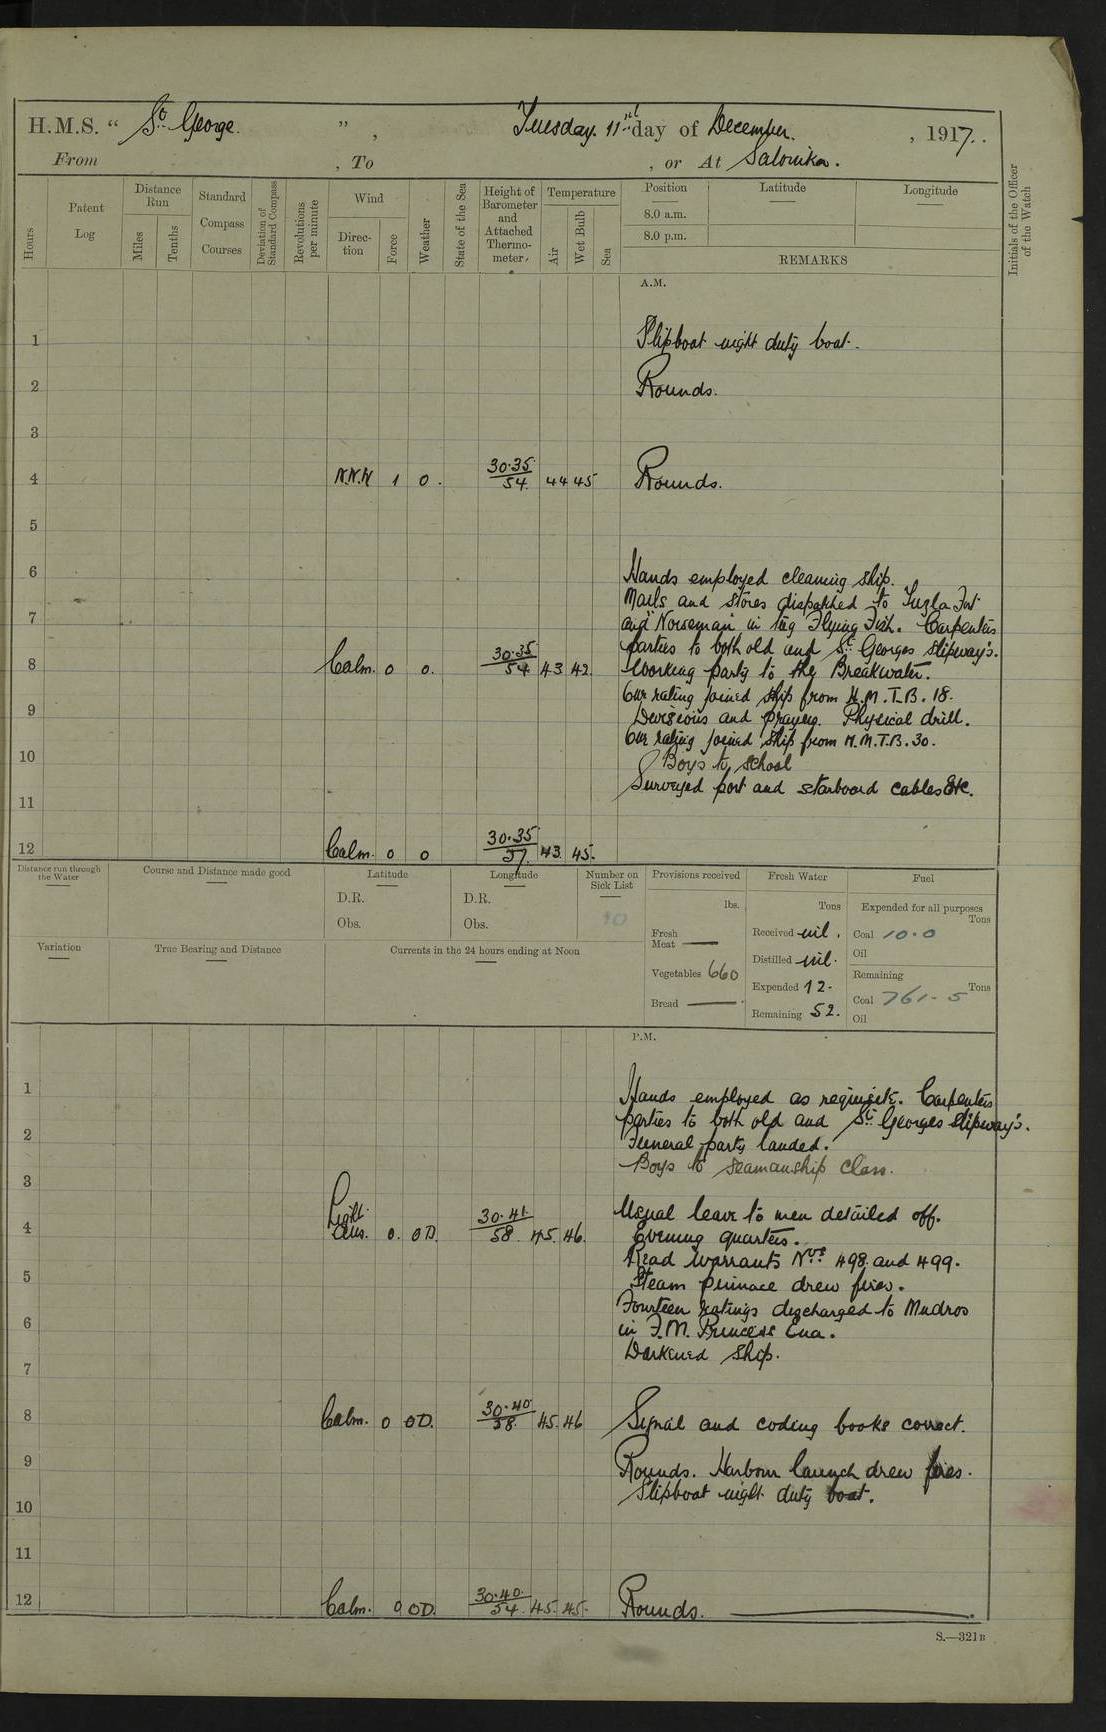 H.M.S. “ St George. ” , Tuesday. 11th day of December. , 1917..
From , To , or At Salonika.
Hours
Patent Log
Distance Run
Miles
Tenths
Standard Compass Courses
Deviation of Standard Compass
Revolutions per minute
Wind
Direction
Force
Weather
State of the Sea
Height of Barometer and Attached Thermometer
Temperature
Air
Wet Bulb
Sea
Position
8.0 a.m.
8.0 p.m.
Latitude
Longitude
REMARKS
Initials of the Officer of the Watch
A.M.
1 Slipboat night duty boat.
2 Rounds.
3
4 N.N.W 1 0. 30.35/54 44 45 Rounds.
5
6 Hands employed cleaning ship.
Mails and stores dispatched to Tuzla Fort
7 and "Norseman" in tug Flying Fish. Carpenters
parties to both old and St Georges slipway's.
8 Calm. 0 0. 30.35/54 43 42. Working party to the Breakwater.
One rating joined ship from H.M.T.B. 18.
9 Divisions and prayers. Physical drill.
One rating joined ship from H.M.T.B. 30.
10 Boys to school
Surveyed port and starboard cables Etc.
11
12 Calm. 0 0 30.35/57. 43 45.
Distance run through the Water
Course and Distance made good
Latitude
D.R.
Obs.
Longitude
D.R.
Obs.
Number on Sick List
10
Provisions received
lbs.
Fresh Meat —
Vegetables 660
Bread —
Fresh Water
Tons
Received nil.
Distilled nil.
Expended 12.
Remaining 52.
Fuel
Expended for all purposes
Tons
Coal 10.0
Oil
Remaining
Tons
Coal 761.5
Oil
Variation
True Bearing and Distance
Currents in the 24 hours ending at Noon
P.M.
1 Hands employed as requisite. Carpenters
parties to both old and St Georges slipway's.
2 Funeral party landed.
Boys to seamanship class.
3
4 Light airs. 0. 0D. 30.41/58. 45. 46. Usual leave to men detailed off.
Evening quarters.
Read warrants Nos 498 and 499.
5 Steam pinnace drew fires.
Fourteen ratings discharged to Mudros
6 in F.M. Princess Ena.
Darkened ship.
7
8 Calm. 0 0D. 30.40/58. 45. 46 Signal and coding books correct.
9 Rounds. Harbour launch drew fires.
Slipboat night duty boat.
10
11
12 Calm. 0 0D. 30.40/54. 45. 45. Rounds.
S.—321B